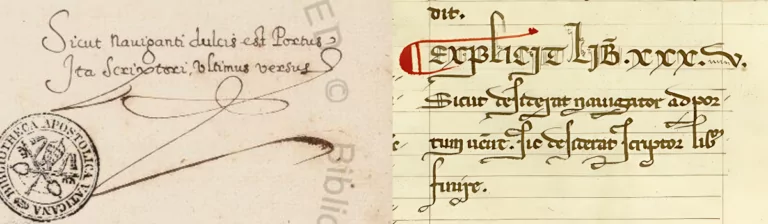 Sicut nauiganti dulcis est Portus
Ita Scriptori, Vltimus versus
BIBLIOTHECA APOSTOLICA VATICANA
ED © Bibli
dit.
Explicit lib̃. xxx.iiii v.
Sicut desiderat nauigator ad por
tum uenire. sic desiderat scriptor lib
finire.